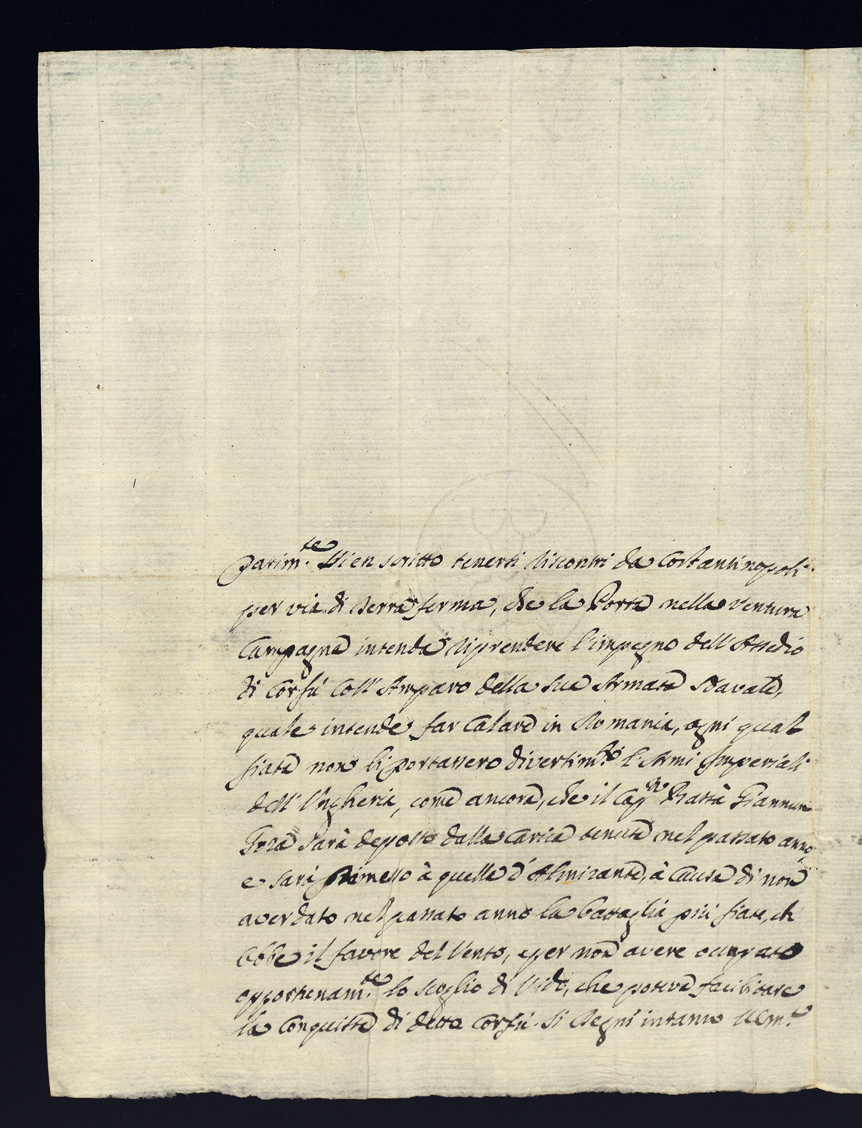 Parim.te Vien scritto tenersi riscontri da Costantinopoli
per via di Terra ferma, che la Porta nella ventura
Campagna intenda riprendere l'impegno dell'Assedio
di Corfù coll'Amparo della sua Armata Navale,
quale intende far calare in Romania, ogni qual
fiata non li portassero divertim.to l'Armi Imperiali
dell'Ungheria, come ancora, che il Cap.n Bassà Giannun
Goza sarà deposto dalla carica tenuta nel passato anno
e sarà rimesso à quella d'Almirante, à causa di non
aver dato nel passato anno la battaglia più fiate, ch'
ebbe il favore del Vento, e per non avere occupato
opportunam.te lo scoglio di Vido, che poteva facilitare
la conquista di detta Corfù. Si degni intanto